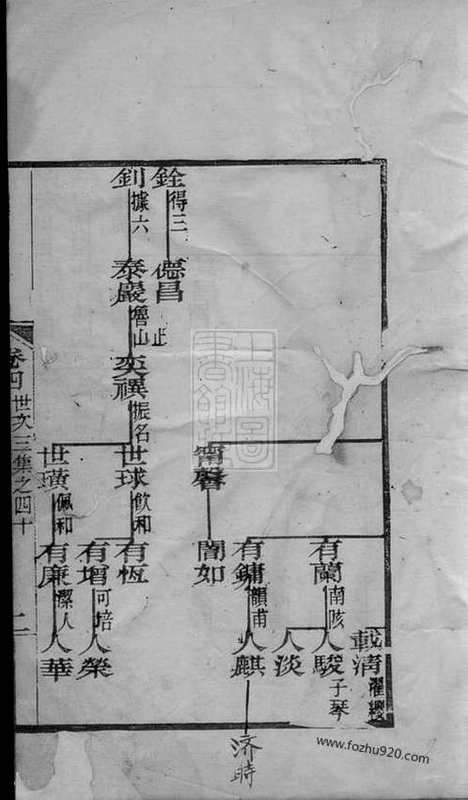 載清 濯纓
有蘭 南陔 人駿 子琴
人淡
有鏞 韻甫 人麒 济時
甯馨 闇如
銓 得三 德昌 止
釗 據六 泰巖 魯山 奕禩 振名 世球 飲和 有恆
有增 可培 人榮
世璜 佩和 有廉 潔人 人華
卷四 世次三集之四十 二
上海圖書館藏
www.fozhu920.com